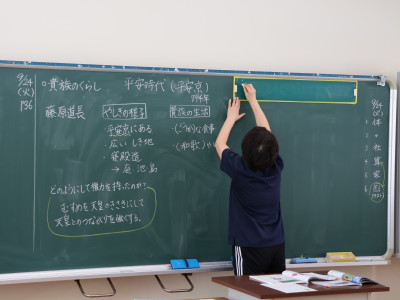 9/24
(火)
P36
○貴族のくらし
平安時代(平安京)
794年
藤原道長
やしきの様子
平安京にある
・広いしき地
・寝殿造
→庭 池 島
貴族の生活
・(ごうかな食事
・(和歌)や
どのようにして権力を持ったのか?
むすめを天皇のきさきにして
天皇とのつながりを強くする。
9/24
(火)
1 体
2 〃
3 社
4 算
5 家